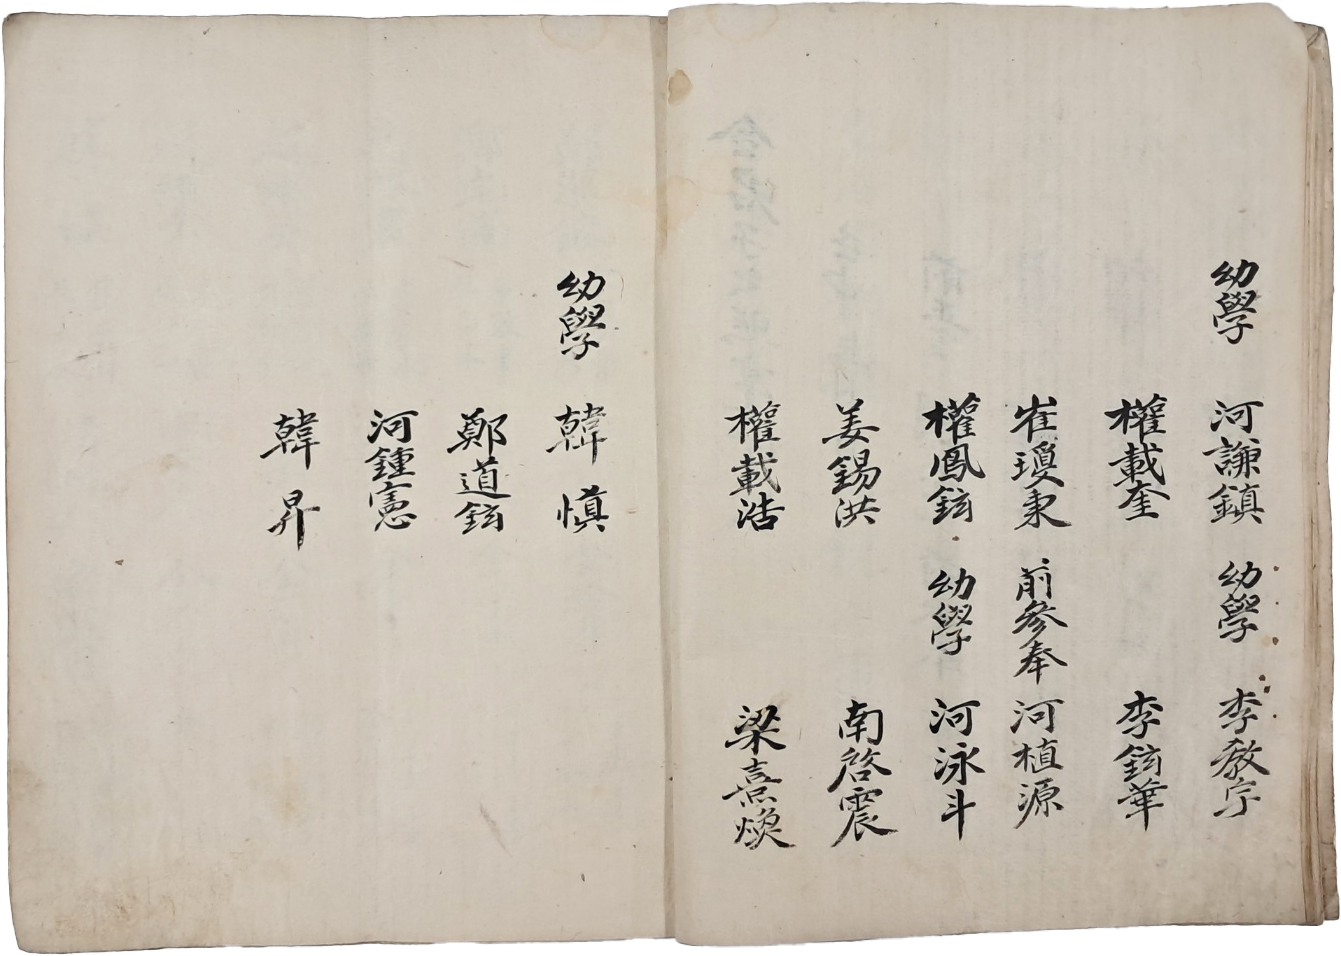 幼學 河謙鎭 幼學 李敎宇
權載奎 李鉉華
崔瓊秉 前參奉 河植源
權鳳鉉 幼學 河泳斗
姜錫洪 南啓震
權載浩 梁熹煥
幼學 韓愼
鄭道鉉
河鍾憲
韓昇